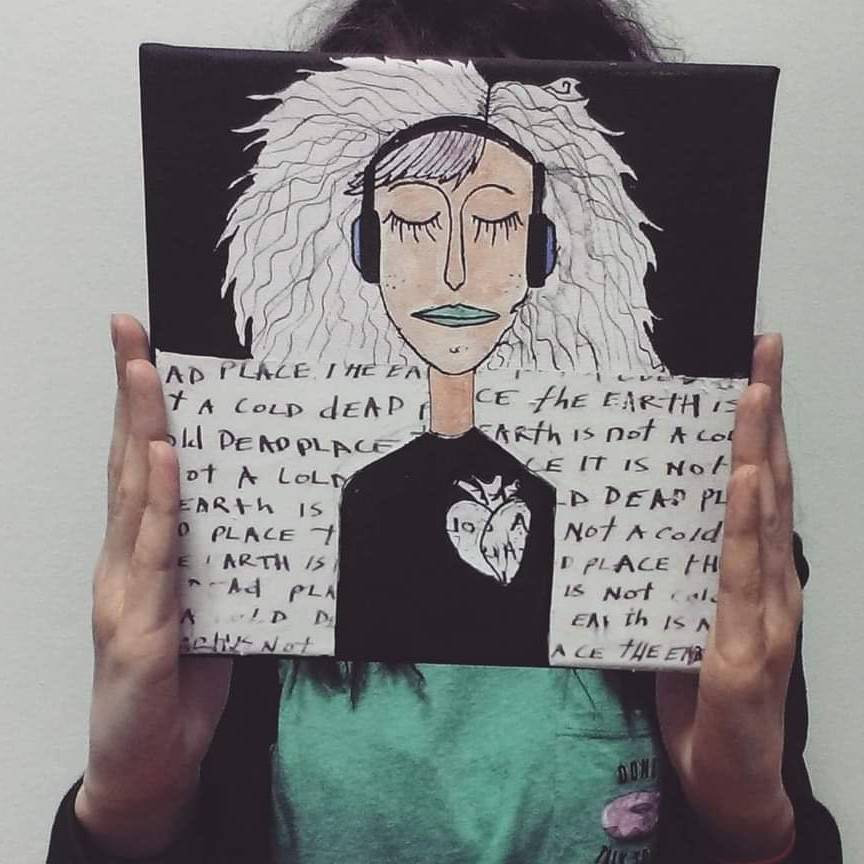 AD PLACE THE EA
T A COLD dEAD P CE the EARTH is
old DEAD PLACE EARth is not A COL
ot A COLD CE IT IS Not
EARth IS LD DEAD PL
D PLACE T Not A Cold
E EARTH IS D PLACE tH
Ad PLA is Not
A LD D EARth IS N
Not ACE tHE EAR
DON'